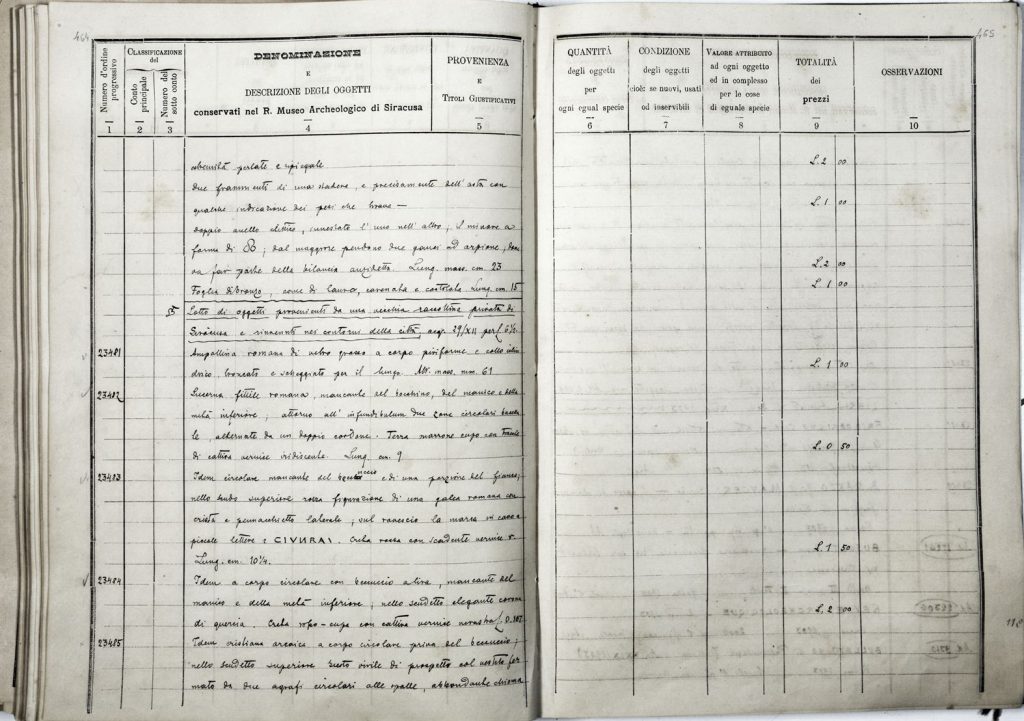 464
Numero d'ordine progressivo
CLASSIFICAZIONE del
Conto principale
Numero del sotto conto
DENOMINAZIONE
E
DESCRIZIONE DEGLI OGGETTI
conservati nel R. Museo Archeologico di Siracusa
PROVENIENZA
E
TITOLI GIUSTIFICATIVI
1 2 3 4 5
perlate e
due frammenti di una stadera, e precisamente dell'asta con
qualche indicazione dei pesi che
doppio anello elittico, innestato l'uno nell'altro; il minore a
forma di 8; dal maggiore pendono due ganci ad arpione,
fa far parte della bilancia anzidetta. Lung. mass. cm. 23
Foglia di bronzo, di lauro, carenata e costolata. Lung. cm. 15
Lotto di oggetti provenienti da una vecchia raccoltina privata di
Siracusa e rinvenuti nei contorni della città, acqu. 29/XII per £
23481 Ampollina romana di vetro grosso a corpo piriforme e collo cilin
drico, troncato e scheggiato per il lungo. Alt. mass. mm. 61
23482 Lucerna fittile romana, mancante del becchino, del manico e della
metà inferiore; attorno all'infundibulum due zone circolari
le, alternate da un doppio cordone. Terra marrone cupo con traccie
di cattiva vernice iridiscente. Lung. cm. 9
23483 Idem circolare mancante del beccuccio e di una porzione del fianco;
nello scudo superiore rozza figurazione di una galea romana con
cresta e pennacchietto laterale; sul rovescio la marca in cavo a
piccole lettere: C IVNRAI. Creta rossa con scadente vernice
Lung. cm 10¼.
23484 Idem a corpo circolare con beccuccio a lira, mancante del
manico e della metà inferiore; nello scudetto elegante corona
di quercia. Creta cupo con cattiva vernice
23485 Idem cristiana arcaica a corpo circolare priva del beccuccio;
nello scudetto superiore busto virile di prospetto col vestito fer
mato da due agrafi circolari alle spalle, abbondante chioma
465
QUANTITÀ
degli oggetti
per
ogni egual specie
CONDIZIONE
degli oggetti
cioè: se nuovi, usati
od inservibili
VALORE ATTRIBUITO
ad ogni oggetto
ed in complesso
per le cose
di eguale specie
TOTALITÀ
dei
prezzi
OSSERVAZIONI
6 7 8 9 10
L. 2 00
L. 1 00
L. 2 00
L. 1 00
L. 1 00
L. 0 50
L. 1 50
L. 2 00